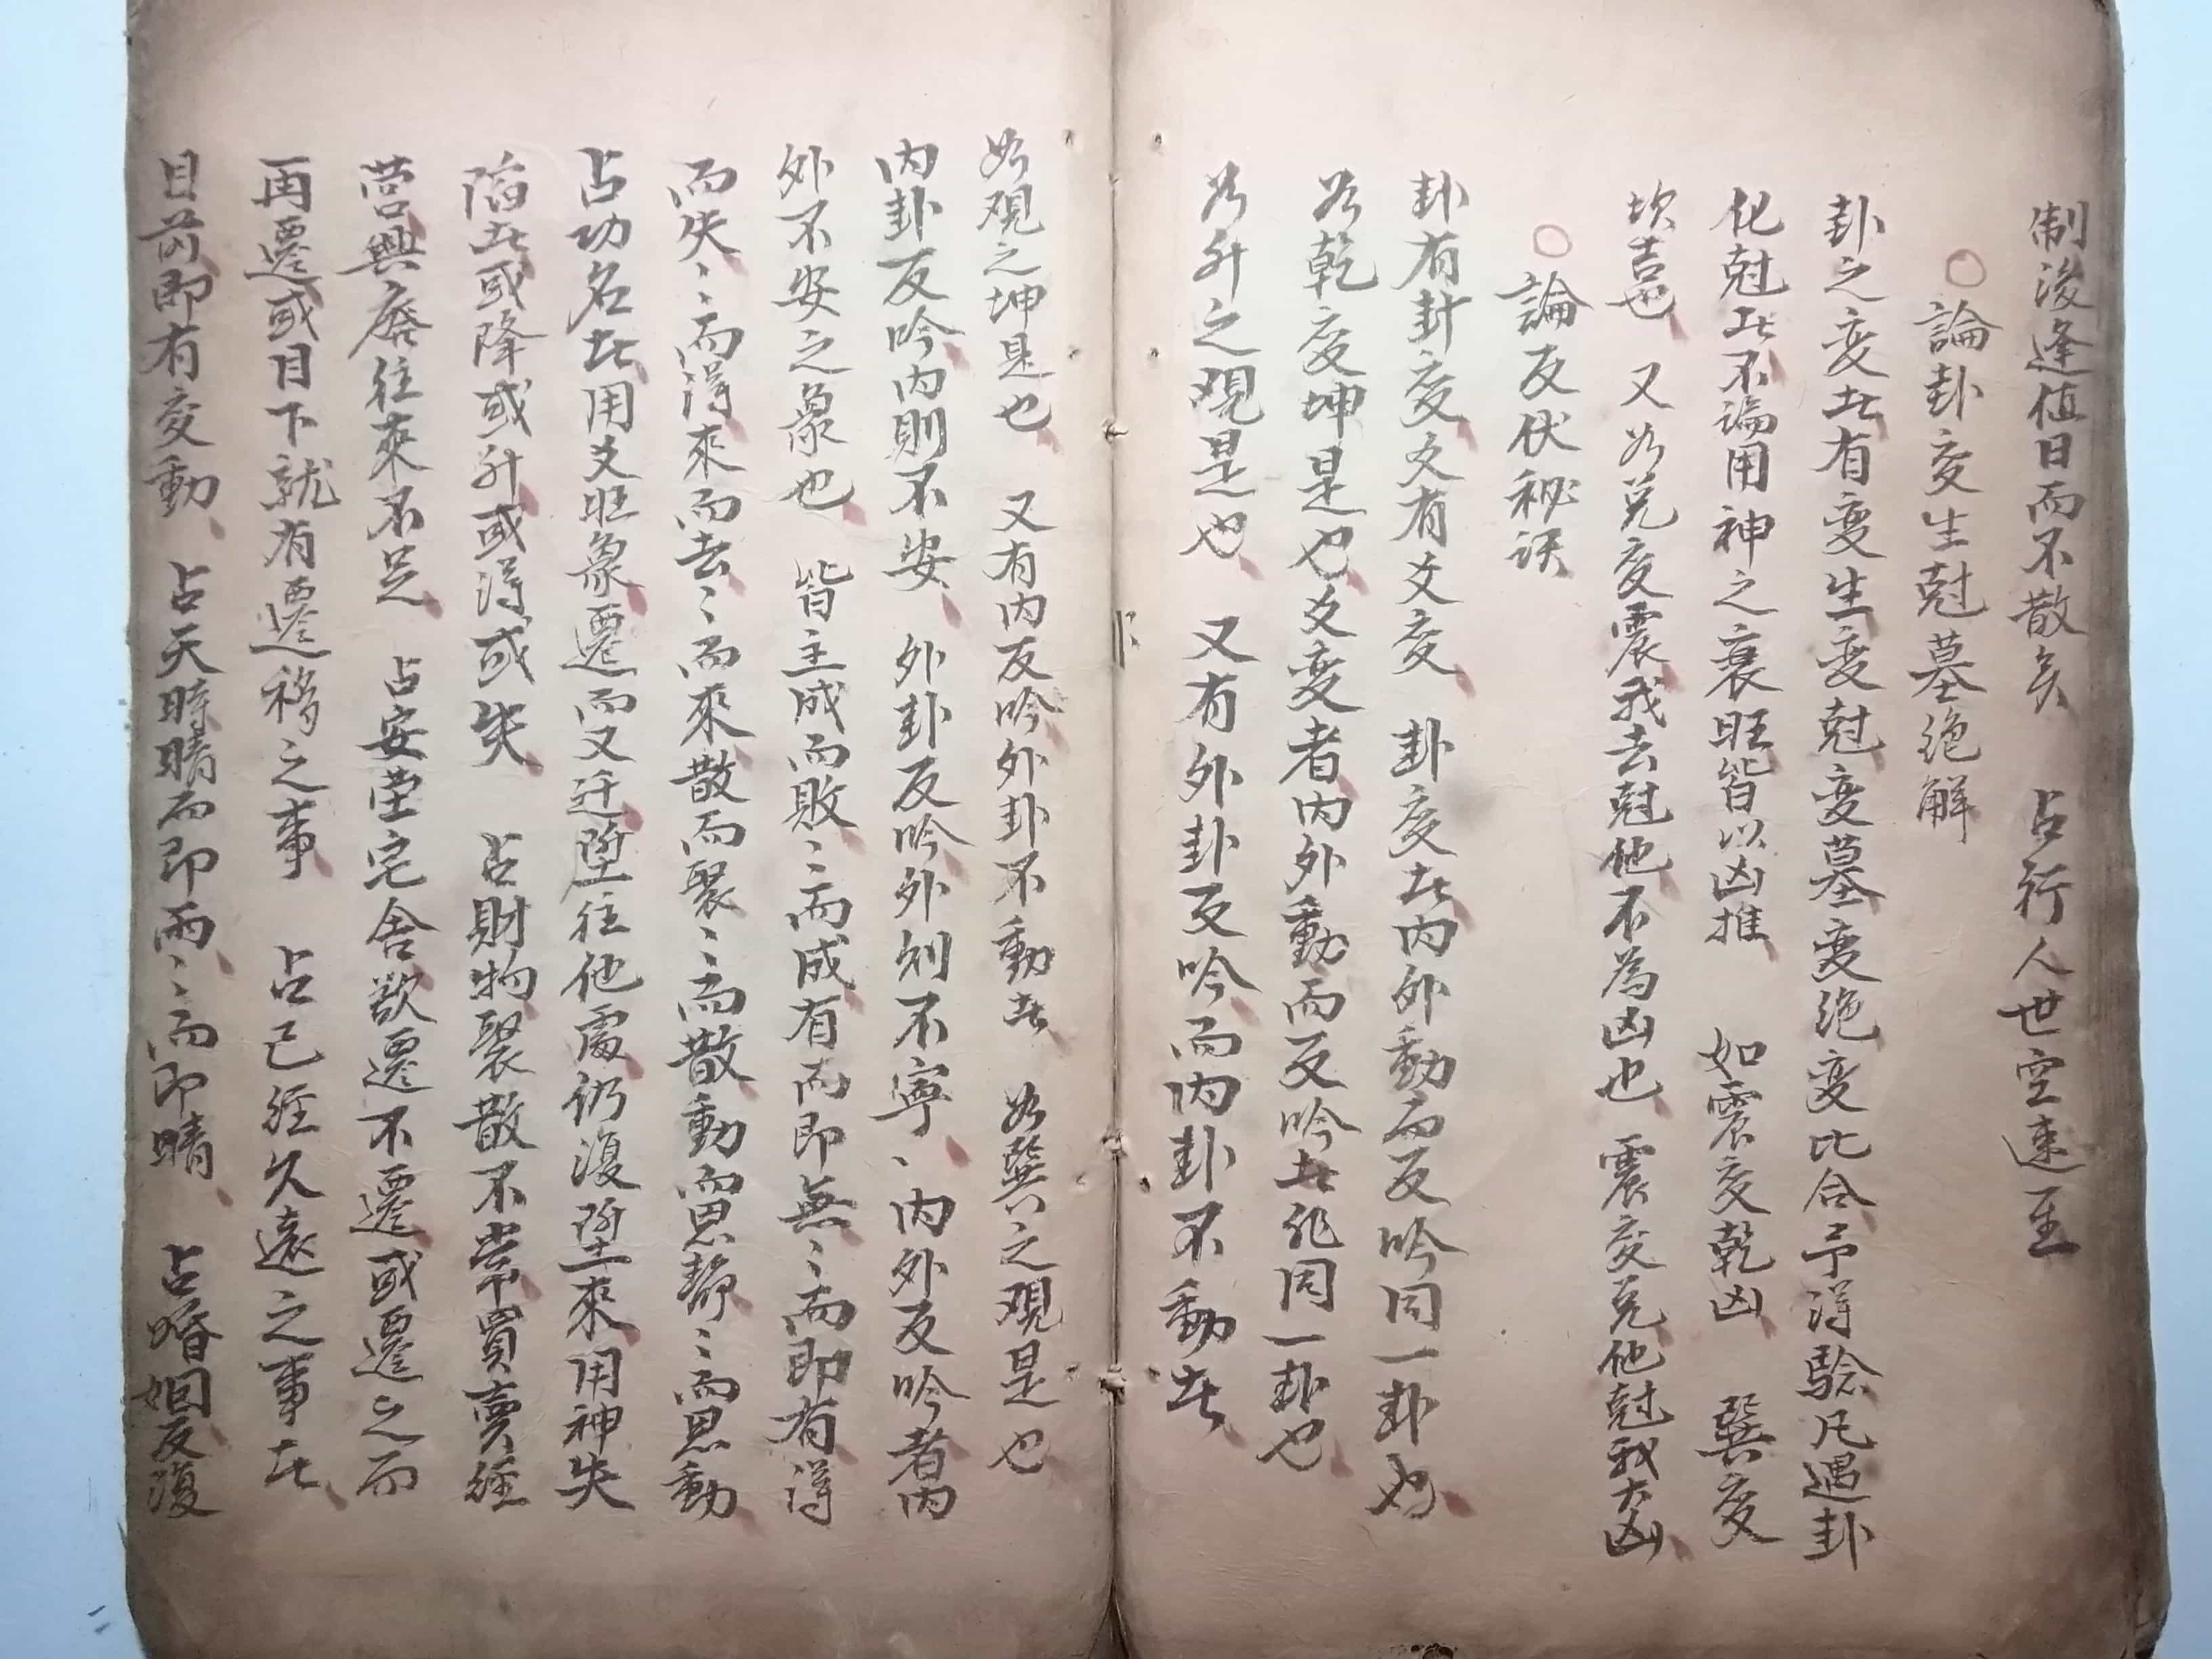 制後逢值日而不散矣 占行人世空速至
○論卦变生尅墓绝解
卦之变者有变生变尅变墓变绝变比合予得騐凡遇卦
化尅者不論用神之衰旺皆以凶推 如震变乾凶 巽变
坎吉也 又如兑变震我去尅他不為凶也 震变兑他尅我大凶
○論反伏秘诀
卦有卦变爻有爻变 卦变者内外動而反吟同一卦也
如乾变坤是也 爻变者内外動而反吟者非同一卦也
如升之观是也 又有外卦反吟而内卦不動者
如观之坤是也 又有内反吟外卦不動者 如巽之观是也
内卦反吟内則不安 外卦反吟外則不寧 内外反吟者内
外不安之象也 皆主成而敗〻而成有而即無〻而即有得
而失〻而得來而去〻而來散而聚〻而散動而思静〻而思動
占功名者用爻旺象遷而又迁陞往他處仍復陞來用神失
陷者或降或升或得或失 占財物聚散不常買賣經
营興廢往來不足 占安茔宅舍欲遷不遷或遷之而
再遷或目下就有遷移之事 占已經久遠之事者
目前即有变動 占天時晴而即雨〻而即晴 占婚姻反復